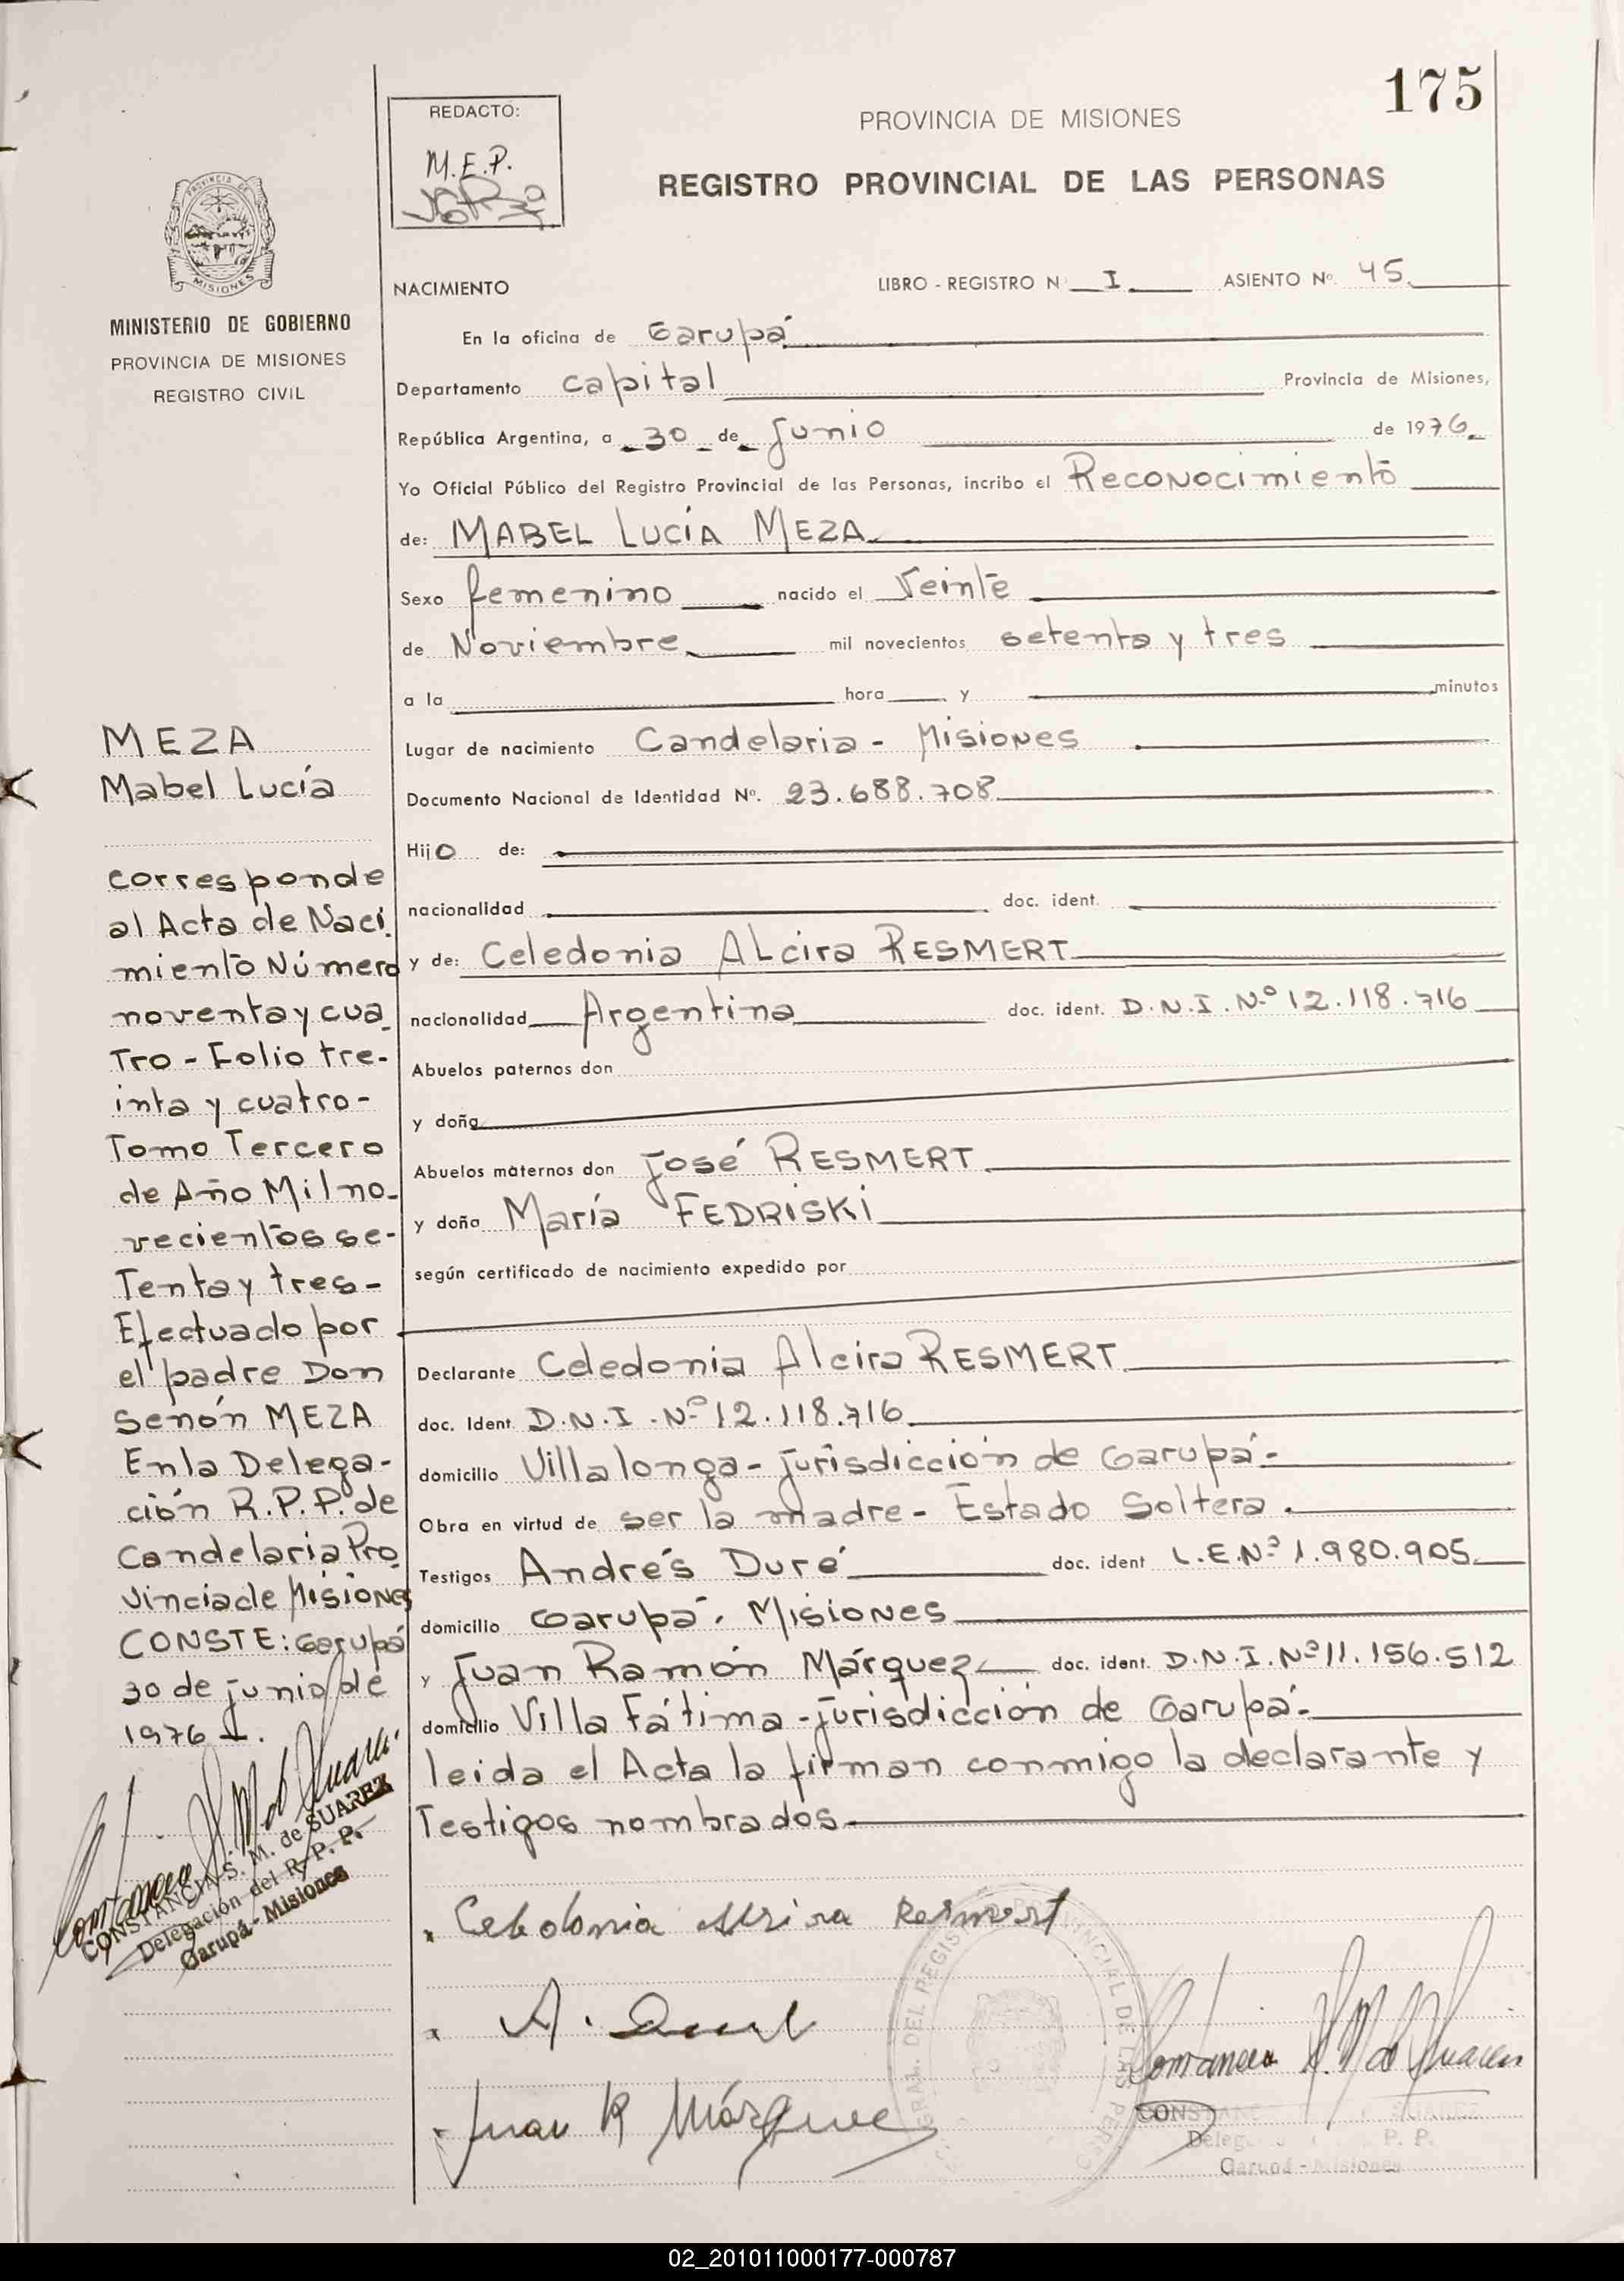 175
REDACTO:
M.E.P.
PROVINCIA DE MISIONES
REGISTRO PROVINCIAL DE LAS PERSONAS
PROVINCIA DE
MISIONES
MINISTERIO DE GOBIERNO
PROVINCIA DE MISIONES
REGISTRO CIVIL
NACIMIENTO LIBRO - REGISTRO N I ASIENTO Nº. 45
En la oficina de Garupá
Departamento capital Provincia de Misiones,
República Argentina, a 30 de Junio de 1976
Yo Oficial Público del Registro Provincial de las Personas, incribo el Reconocimiento
de: MABEL LUCÍA MEZA
Sexo femenino nacido el Veinte
de Noviembre mil novecientos setenta y tres
a la hora y minutos
Lugar de nacimiento Candelaria - Misiones
Documento Nacional de Identidad Nº. 23.688.708
Hijo de:
nacionalidad doc. ident.
y de: Celedonia ALcira RESMERT
nacionalidad Argentina doc. ident. D.N.I. Nº 12.118.716
Abuelos paternos don
y doña
Abuelos maternos don José RESMERT
y doña María FEDRISKI
según certificado de nacimiento expedido por
Declarante Celedonia Alcira RESMERT
doc. Ident. D.N.I. Nº 12.118.716
domicilio Villalonga - jurisdicción de Garupá -
Obra en virtud de ser la madre - Estado Soltera .
Testigos Andrés Duré doc. ident L.E.Nº 1.980.905
domicilio Garupá. Misiones
y Juan Ramón Márquez doc. ident. D.N.I. Nº 11.156.512
domicilio Villa Fátima - jurisdicción de Garupá.
leida el Acta la firman conmigo la declarante y
Testigos nombrados
MEZA
Mabel Lucía
corresponde
al Acta de Naci
miento Número
noventa y cua
tro - Folio tre-
inta y cuatro -
Tomo Tercero
de Año Mil no-
vecientos se-
Tenta y tres -
Efectuado por
el padre Don
Senón MEZA
En la Delega-
ción R.P.P. de
Candelaria Pro
vincia de Misiones
CONSTE: Garupá
30 de junio de
1976
CONSTANCIA S. M. de SUAREZ
Delegación del R. P. P.
Garupá - Misiones
Juan R Márquez
SUAREZ
P. P.
Garupá - Misiones
02_201011000177-000787